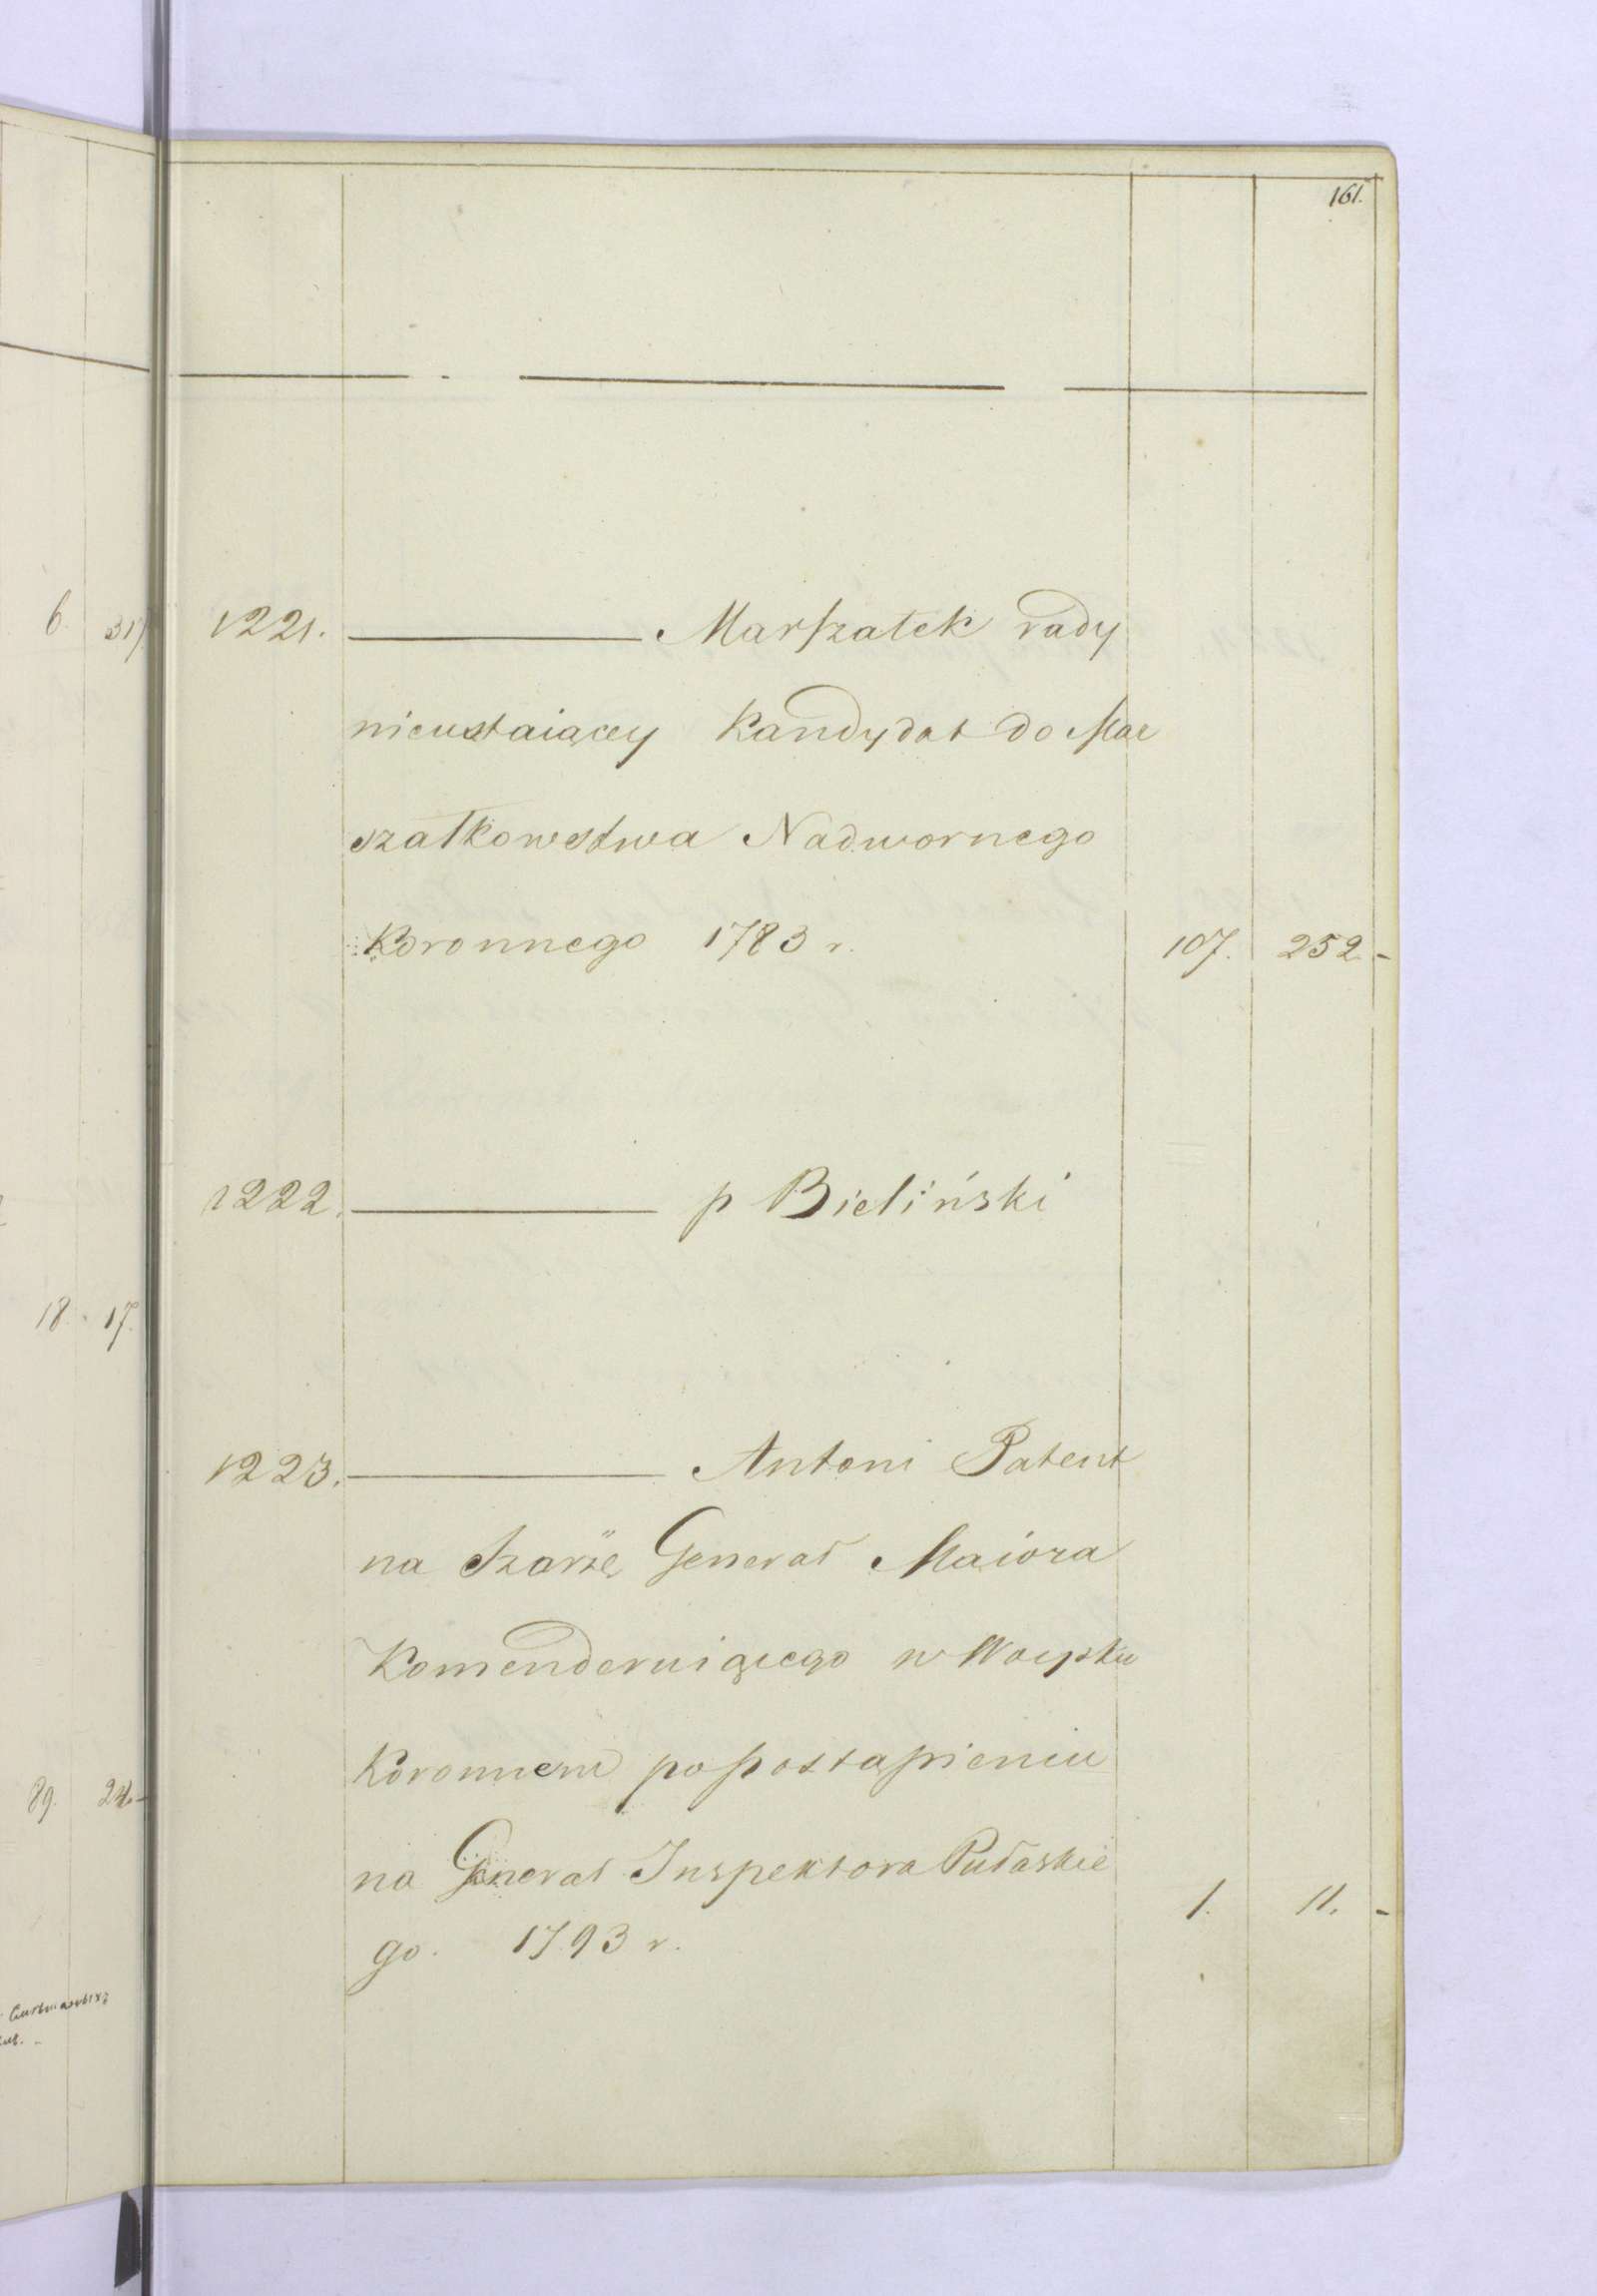 161.
6. 317.
1221. ——— Marszałek rady
nieustaiącey Kandydat do Mar
szałkowstwa Nadwornego
Koronnego 1783 r. 107. 252. -
1222. ——— p Bieliński
18. 17.
1223. ——— Antoni Patent
na Szarżę Generał Maiora
Komenderuiącego w Woysku
Koronnem po postąpieniu
89. 24. -
na Generał Inspektora Pułaskie
go. 1793 r. 1. 11. -